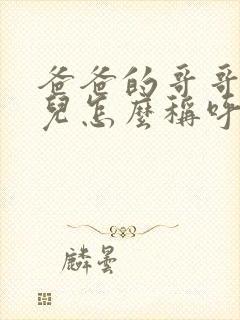 爸爸的哥哥
兒怎麼稱呼
麟曇